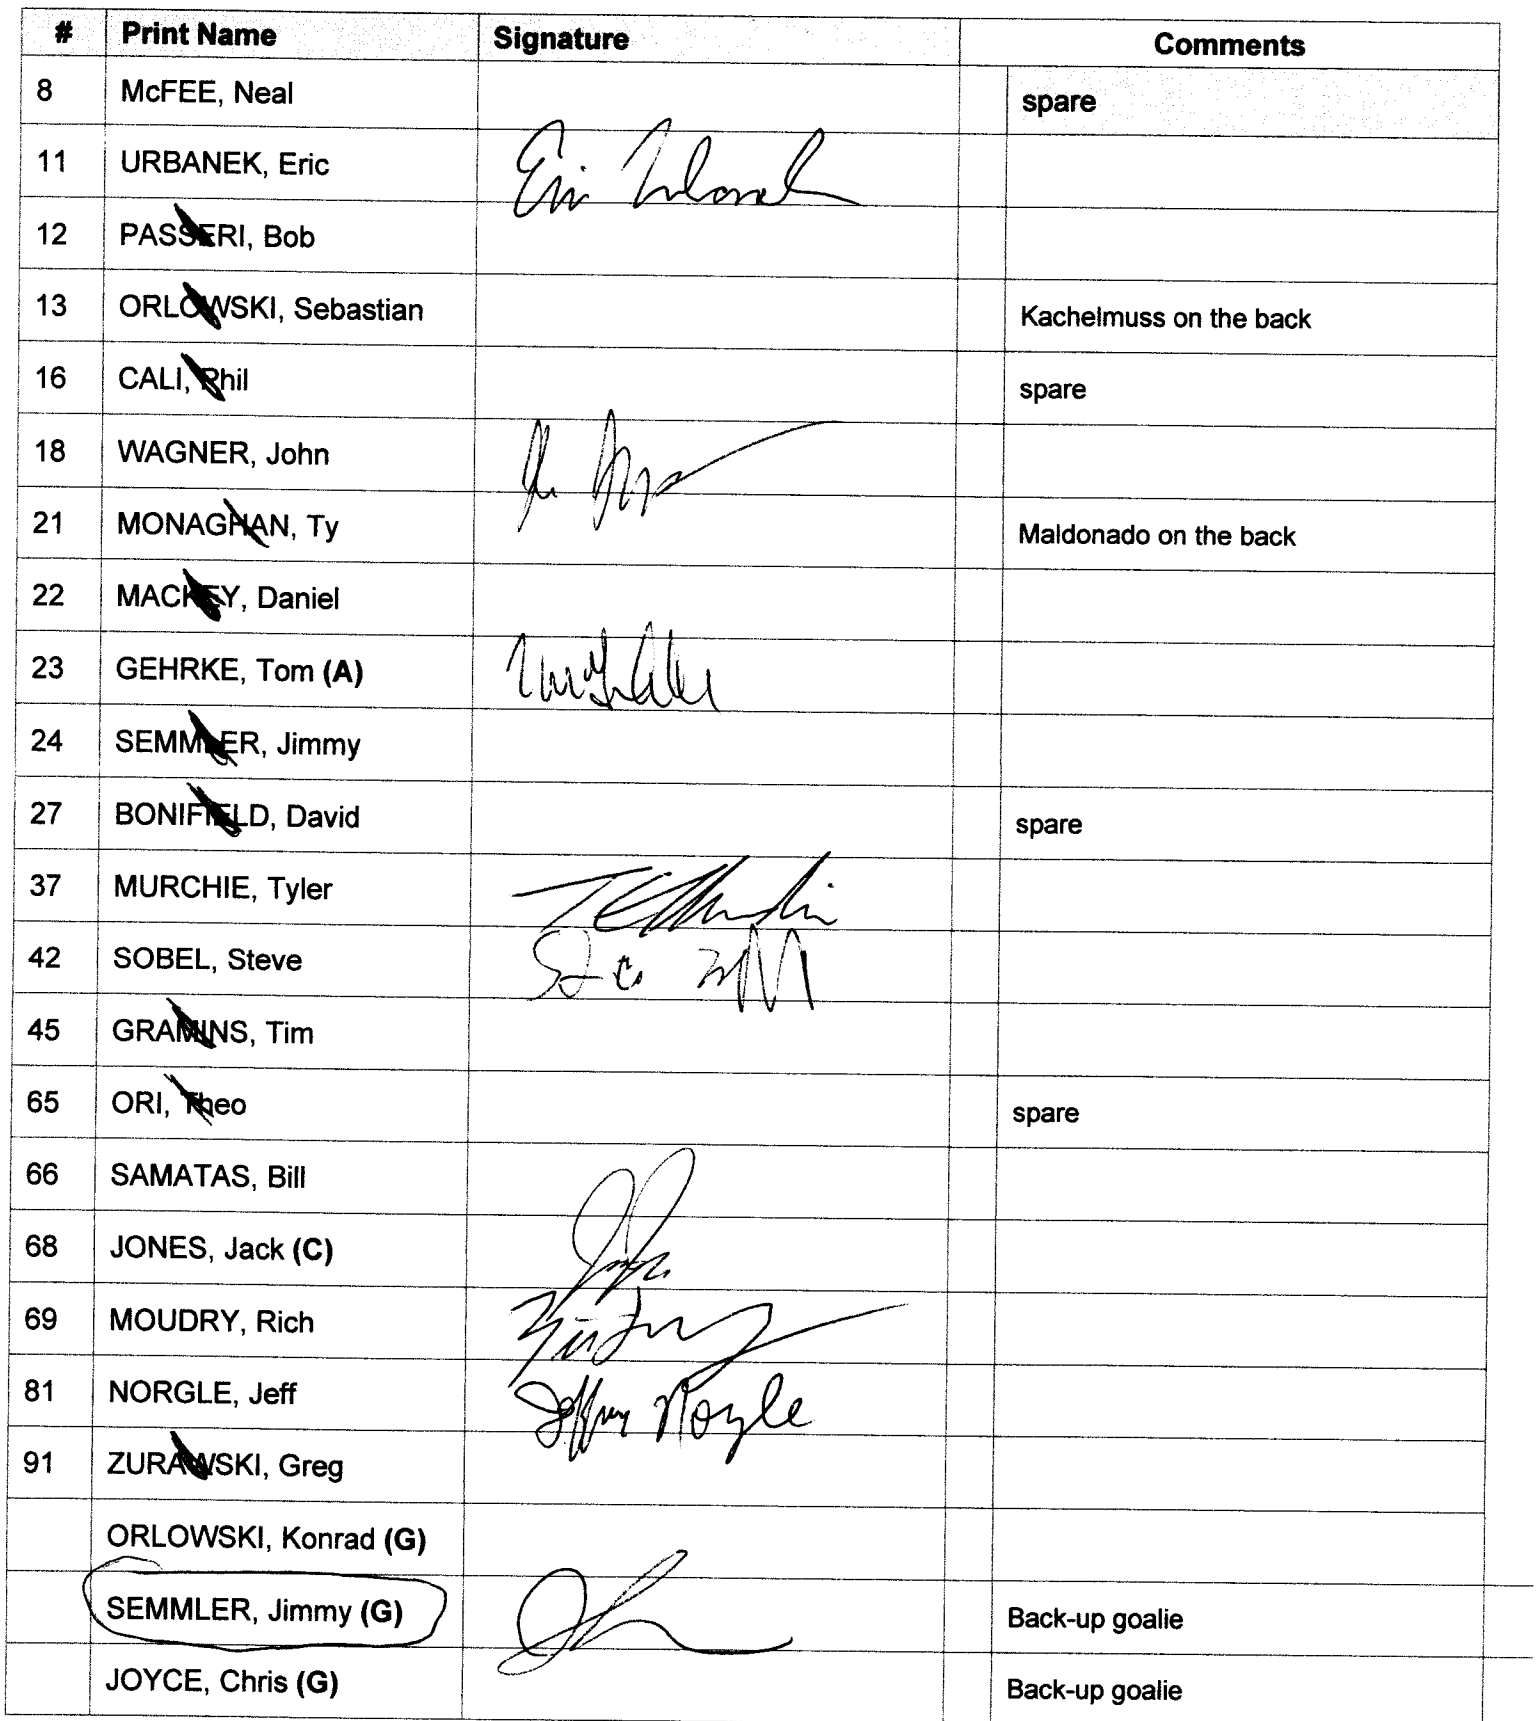 # Print Name Signature Comments
8 McFEE, Neal spare
11 URBANEK, Eric
12 PASSERI, Bob
13 ORLOWSKI, Sebastian Kachelmuss on the back
16 CALI, Phil spare
18 WAGNER, John
21 MONAGHAN, Ty Maldonado on the back
22 MACKEY, Daniel
23 GEHRKE, Tom (A)
24 SEMMLER, Jimmy
27 BONIFIELD, David spare
37 MURCHIE, Tyler
42 SOBEL, Steve
45 GRAMINS, Tim
65 ORI, Theo spare
66 SAMATAS, Bill
68 JONES, Jack (C)
69 MOUDRY, Rich
81 NORGLE, Jeff Jeffrey Norgle
91 ZURAWSKI, Greg
ORLOWSKI, Konrad (G)
SEMMLER, Jimmy (G) Back-up goalie
JOYCE, Chris (G) Back-up goalie